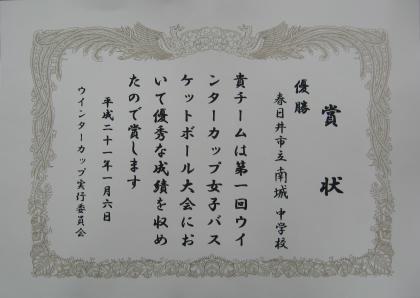 賞状
優勝
春日井市立南城中学校
貴チームは第一回ウイ
ンターカップ女子バス
ケットボール大会にお
いて優秀な成績を収め
たので賞します
平成二十一年一月六日
ウインターカップ実行委員会